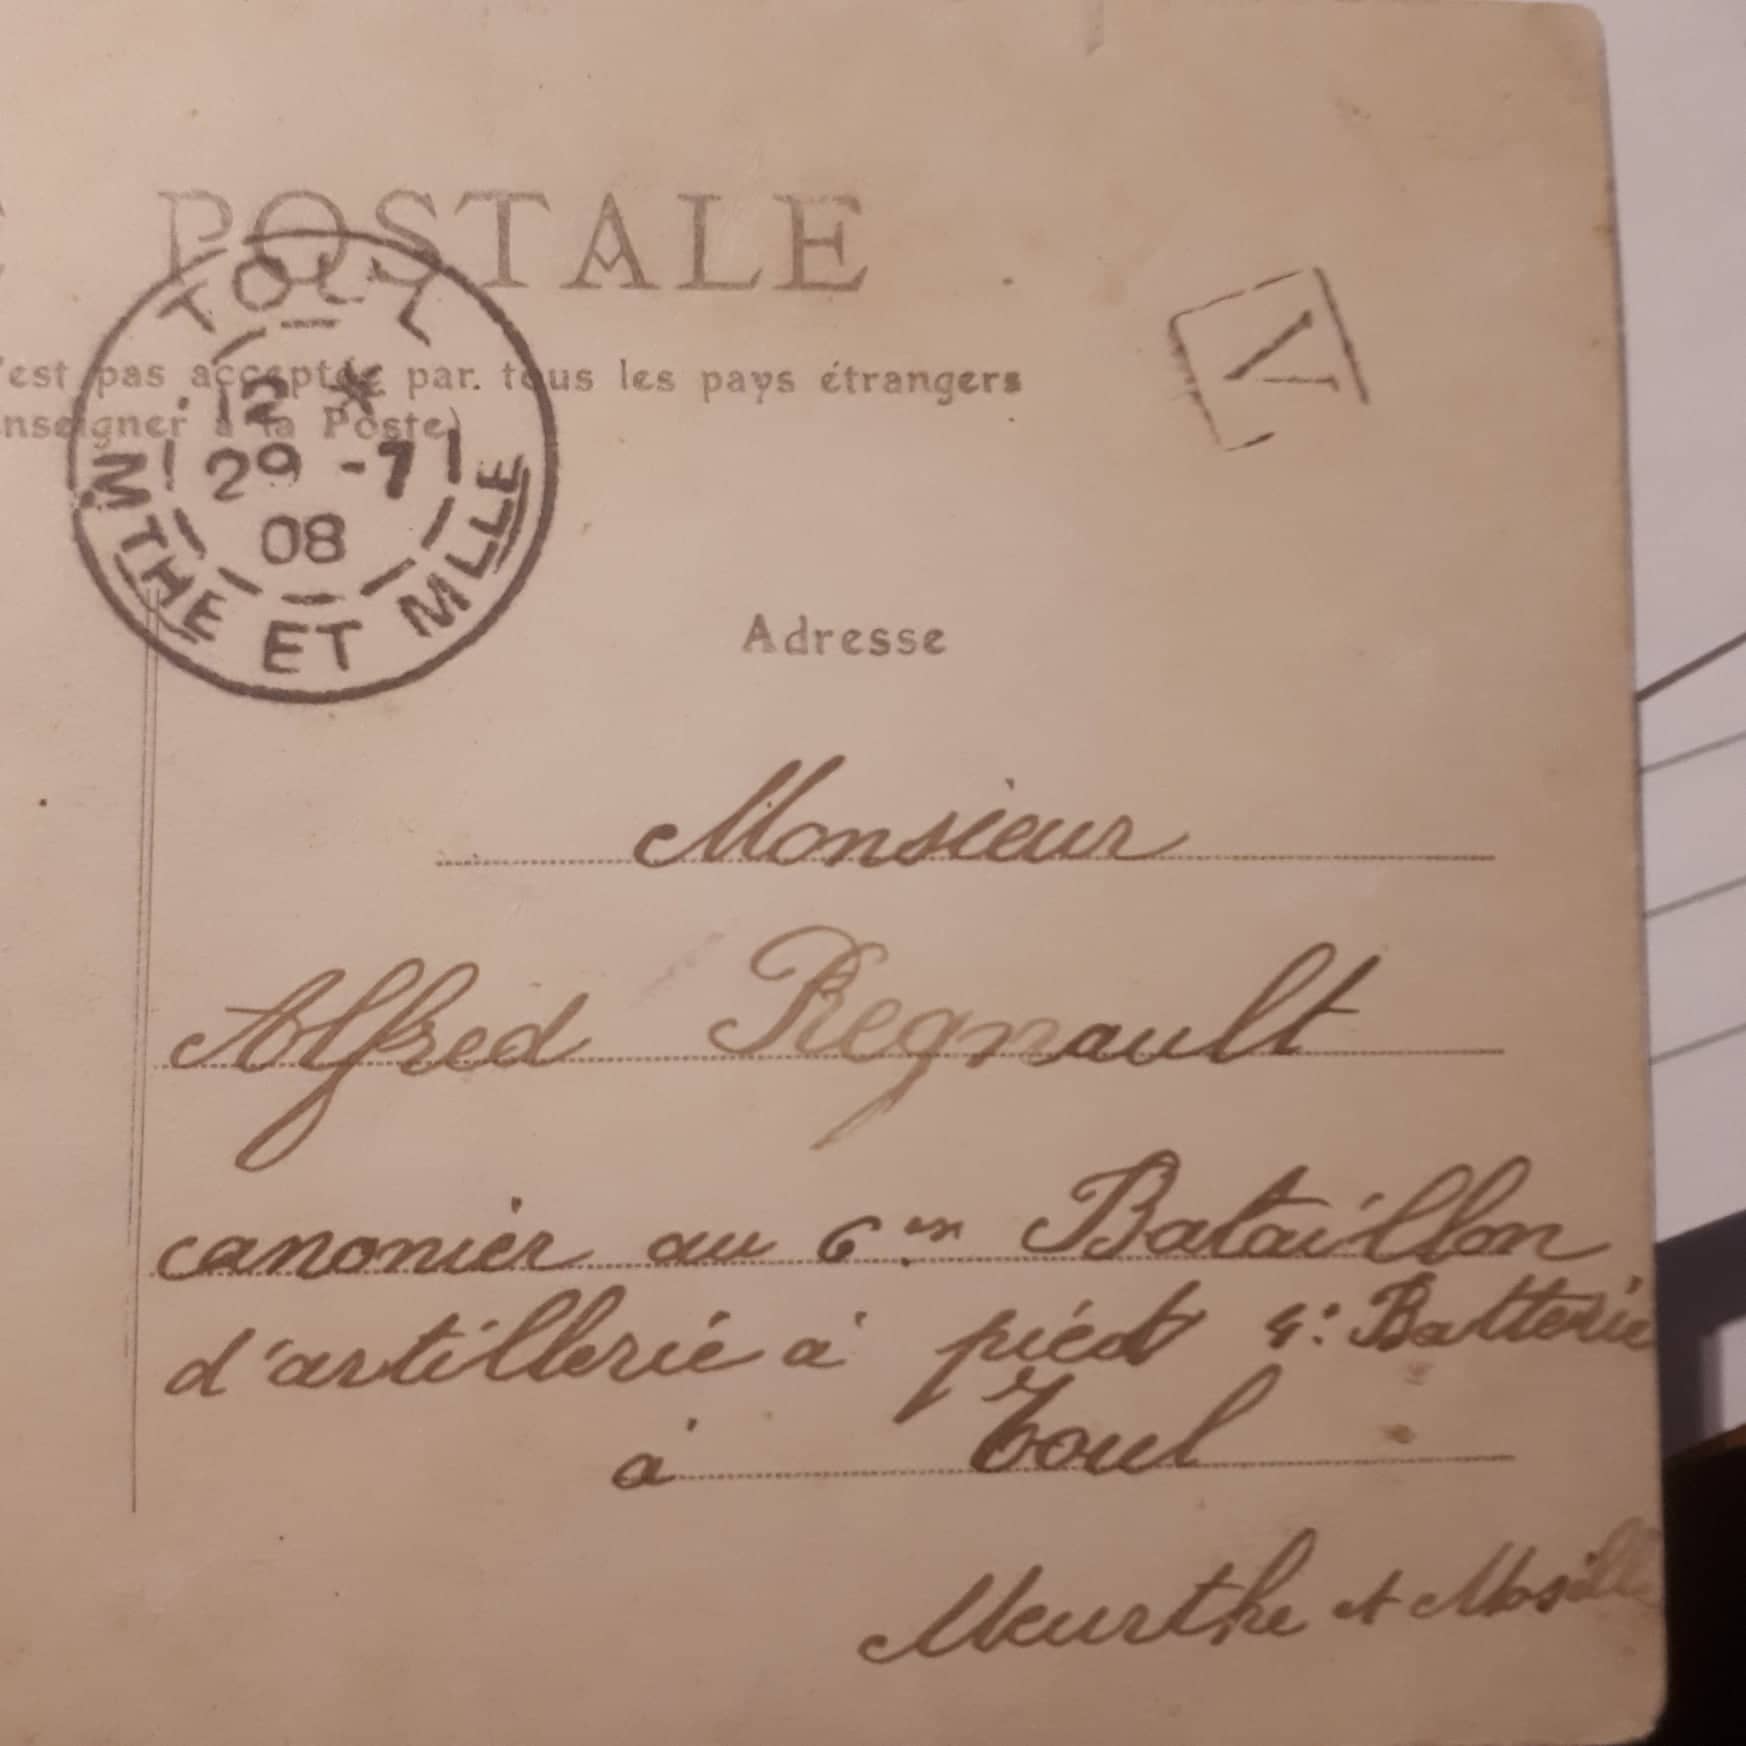 POSTALE
TOUL
'est pas acceptée par. tous les pays étrangers
nseigner à la Poste)
12 *
29 -7
08
MTHE ET MLLE
Adresse
Monsieur
Alfred Regnault
canonier au 6em Bataillon
d'artillerie à piéd Batterie
à Toul
Meurthe et Moselle